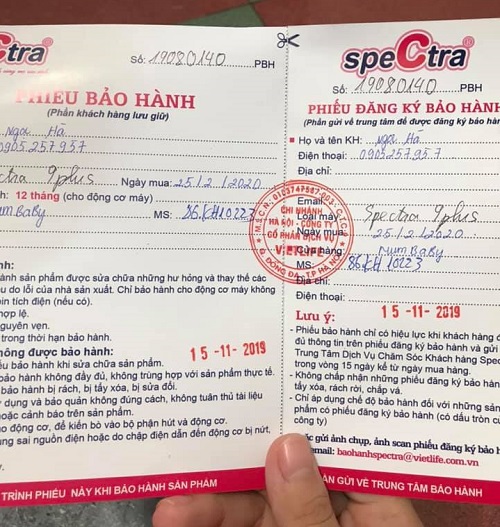 Ctra
Số: 19080140 PBH
PHIẾU BẢO HÀNH
(Phần khách hàng lưu giữ)
Ngọc Hà
0905257957
ctra 9plus Ngày mua: 25.12.2020
h: 12 tháng (cho động cơ máy)
MumBaby MS: 86KH10223
hành:
hành sản phẩm được sửa chữa những hư hỏng và thay thế các
u do lỗi của nhà sản xuất. Chỉ bảo hành cho động cơ máy không
pin tích điện (nếu có).
hợp lệ.
nguyên vẹn.
trong thời hạn bảo hành.
hông được bảo hành:
15-11-2019
khi sửa chữa sản phẩm.
bảo hành không đầy đủ, không trùng hợp với sản phẩm thực tế.
bảo hành bị rách, bị tẩy xóa, bị sửa đổi.
dụng và bảo quản không đúng cách, không tuân thủ tài liệu
hoặc cảnh báo trên sản phẩm.
động cơ, để kiến bò vào bộ phận hút và động cơ.
ng sai nguồn điện hoặc do chập điện dẫn đến động cơ bị nứt,
TRÌNH PHIẾU NÀY KHI BẢO HÀNH SẢN PHẨM
speCtra
Số: 19080140 PBH
PHIẾU ĐĂNG KÝ BẢO HÀNH
(Phần gửi về trung tâm để được đăng ký bảo hành
Họ và tên KH: Ngọc Hà
Điện thoại: 0905257957
Địa chỉ:
Email:
Loại máy: Spectra 9plus
Ngày mua: 25.12.2020
Cửa hàng: MumBaby
MS: 86KH10223
Địa chỉ:
Điện thoại:
CHI NHÁNH
HÀ NỘI - CÔNG TY
CỔ PHẦN DỊCH VỤ
VIETLIFE
Q. ĐỐNG ĐA - T.P HÀ NỘI
Lưu ý: 15-11-2019
- Phiếu bảo hành chỉ có hiệu lực khi khách hàng
đủ thông tin trên phiếu đăng ký bảo hành và gửi
Trung Tâm Dịch Vụ Chăm Sóc Khách hàng Spec
trong vòng 15 ngày kể từ ngày mua hàng.
- Không chấp nhận những phiếu đăng ký bảo hành
tẩy xóa, rách rời, chấp vá.
- Chỉ áp dụng chế độ bảo hành đối với những sản
phẩm có phiếu đăng ký bảo hành (có dấu tròn củ
công ty)
ặc gửi ảnh chụp, ảnh scan phiếu đăng ký bảo h
email: baohanhspectra@vietlife.com.vn
ẦN GỬI VỀ TRUNG TÂM BẢO HÀNH